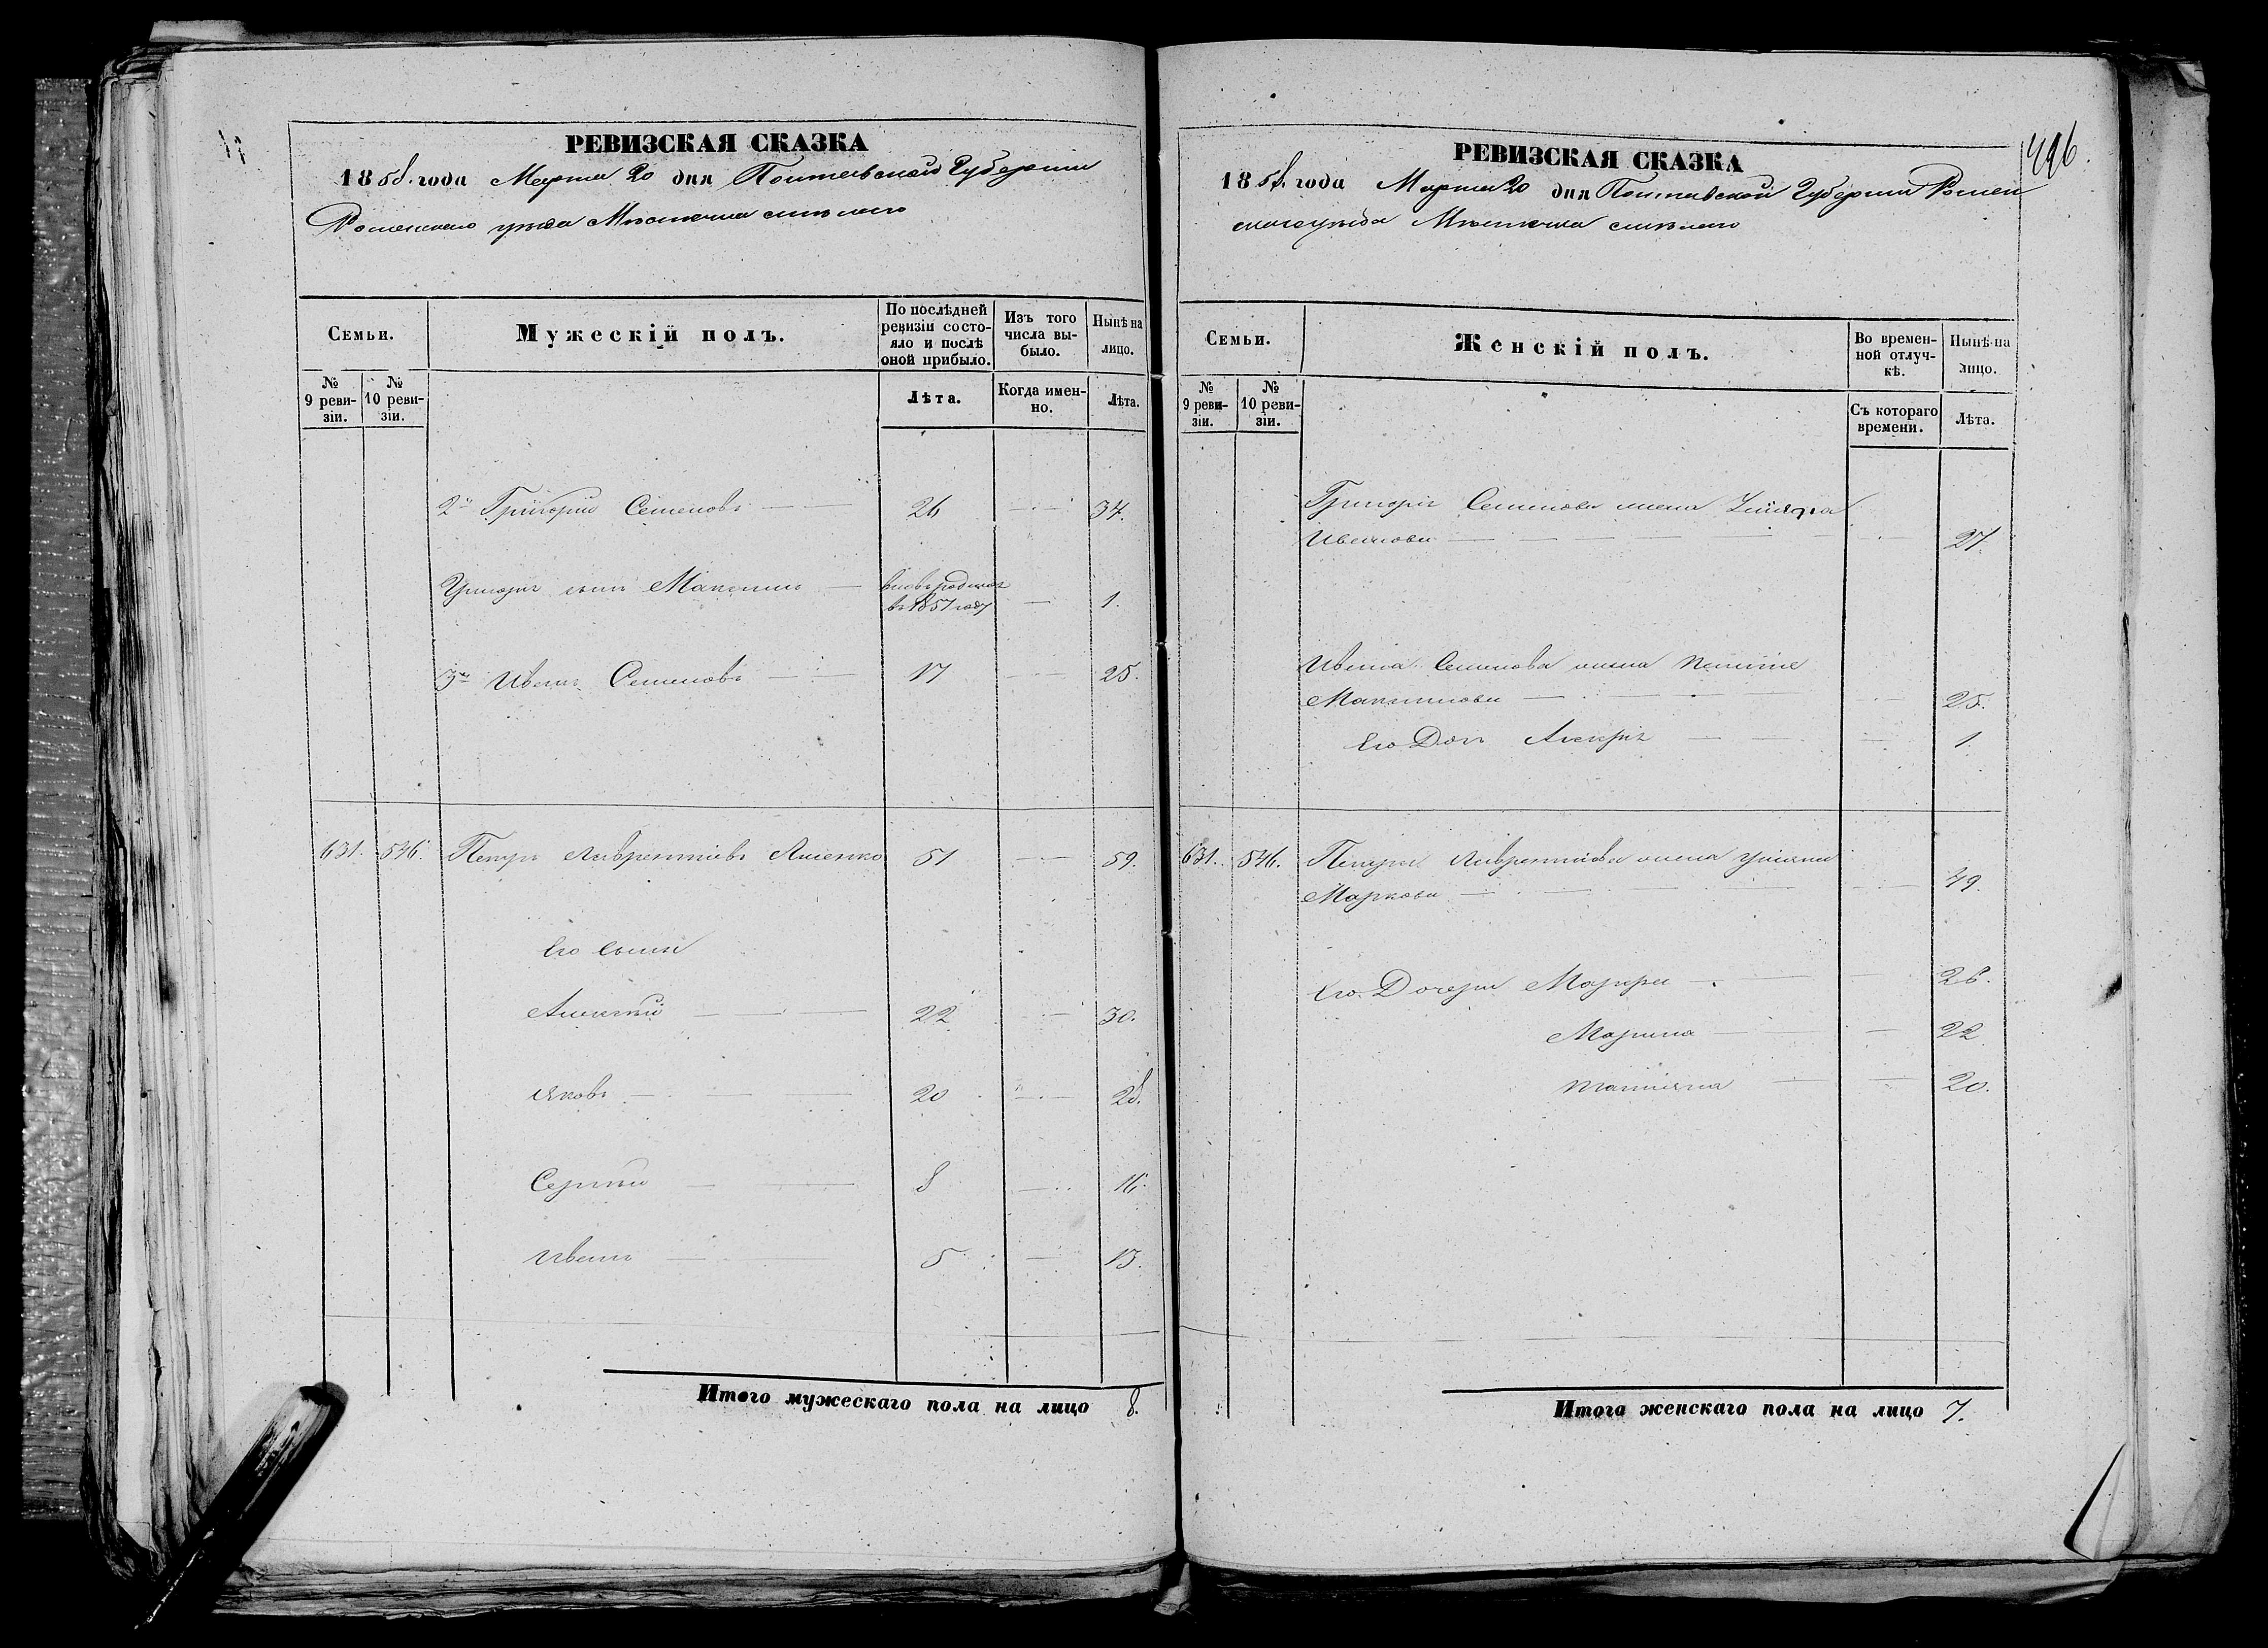 РЕВИЗСКАЯ СКАЗКА
1858. года Марта 20 дня Полтавской Губернии
Роменского уезда Местечка Смелого
Семьи.
Мужескій полъ.
По послѣдней ревизіи состояло и послѣ оной прибыло.
Изъ того числа выбыло.
Нынѣ на лицо.
№ 9 ревизіи.
№ 10 ревизіи.
Лѣта.
Когда именно.
Лѣта.
2й Григорій Семеновъ 26 34.
Григорія сынъ Максимъ вновь рожден в 1857 году 1.
3й Иванъ Семеновъ 17 25.
631. 546. Петръ Лаврентіевъ Лисенко 51 59.
Его сыновья
Алексѣй 22 30.
Яковъ 20 28.
Сергѣй 8 16.
Иванъ 5 13.
Итого мужескаго пола на лицо 8.
496.
РЕВИЗСКАЯ СКАЗКА
1858. года Марта 20 дня Полтавской Губернии Ромен
ского уезда Местечка Смелого
Семьи.
Женскій полъ.
Во временной отлучкѣ.
Нынѣ на лицо.
№ 9 ревизіи.
№ 10 ревизіи.
Съ котораго времени.
Лѣта.
Григорія Семенова жена
Иванова 27.
Ивана Семенова жена
Максимова 25.
Его Дочь 1.
631. 546. Петра Лаврентіева жена Уліяна
Маркова 49.
Его Дочери Марфа 26.
Марина 22
Татіяна 20.
Итого женскаго пола на лицо 7.